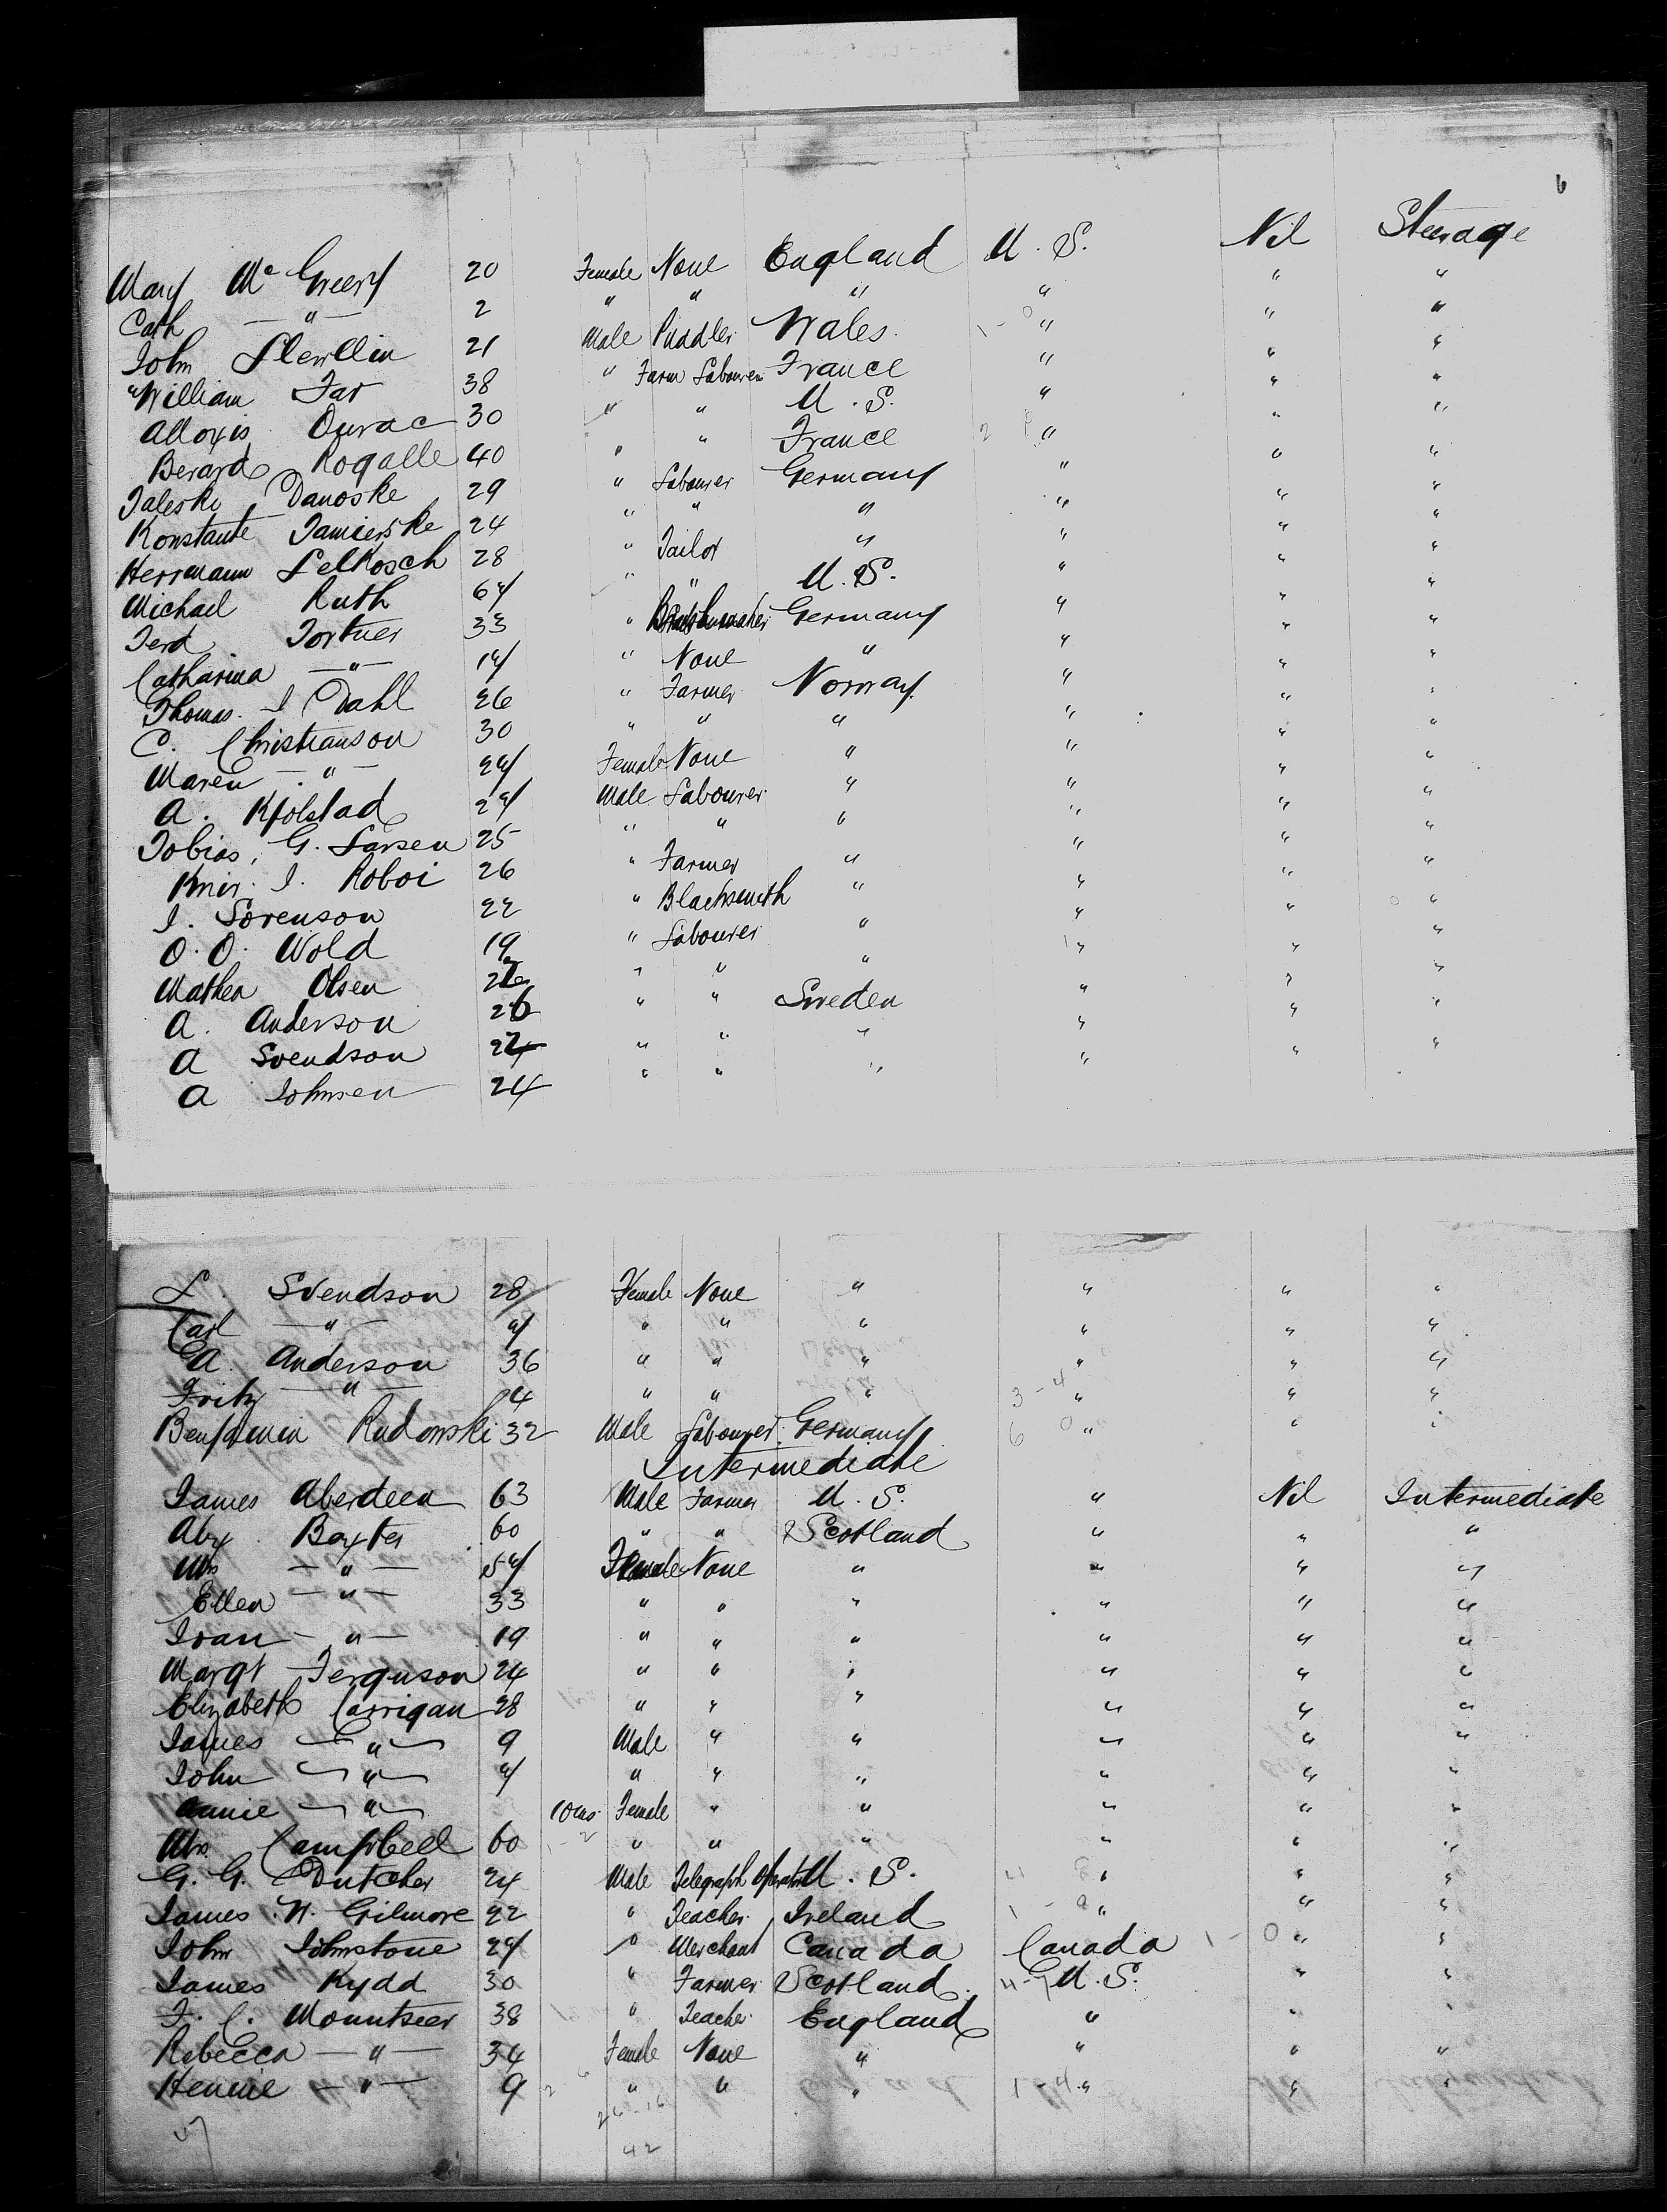 6
Mary Mc Greery 20 Female None England U.S. Nil Steerage
Cath — " — 2 " " " " " "
John Llewllin 21 Male Puddler Wales. 1-0 " " "
"William Far 38 " Farm Labourer France " " "
Alloyis Durac 30 " " U.S. " " "
Berard Rogalle 40 " " France 2 " " "
Taleski Danoske 29 " Labourer Germany " " "
Konstante Tamierske 24 " " " " " "
Herrmann Lelkosch 28 " Tailor " " " "
Michael Ruth 64 " " U.S. " " "
Ferd Fortner 33 " Germany " " "
Catharina — " — 14 " None " " " "
Thomas. I Dahl 26 " Farmer Norway. " " "
C. Christianson 30 " " " " " "
Maren — " — 24 Female None " " " "
A. Kjolstad 24 Male Labourer " " " "
Tobias, G. Larsen 25 " " " " " "
I. Roboi 26 " Farmer " " " "
I. Sorenson 22 " Blacksmith " " " "
O. O. Wold 19 " Labourer " " " "
Mathea Olsen " " " " " "
A. Anderson 26 " " Sweden " " "
A Svendson " " " " " "
A Johnsen 24 " " " " " "
L. Svendson 28 Female None " " " "
Carl — " — 4 " " " " " "
A. Anderson 36 " " " " " "
Fritz — " — 4 " " " 3-4 " " "
Benjamin Rudowski 32 Male Labourer. Germany 6 0 " " "
Intermediate
James Aberdeen 63 Male Farmer U.S. " Nil Intermediate
Alex Baxter 60 " " Scotland " " "
Mrs — " — 54 Female None " " " "
Ellen — " — 33 " " " " " "
Ivan — " — 19 " " " " " "
Margt Ferguson 24 " " " " " "
Elizabeth Carrigan 28 " " " " " "
James — " — 9 Male " " " " "
John — " — 4 " " " " " "
Annie — " — 10 ms. Female " " " " "
Mrs. Campbell 60 1-2 " " " " " "
G. G. Dutcher 24 Male Telegraph Operator U.S. " " "
James N. Gilmore 22 " Teacher. Ireland 1-9 " " "
John Johnstone 24 " Merchant Canada Canada 1-0 " "
James Kydd 30 " Farmer. Scotland. 4-7 U.S. " "
F. C. Mountseer 38 " Teacher. England " " "
Rebecca — " — 34 Female None " " " "
Hennie — " — 9 " " " 1-4 " " "
26-16
42